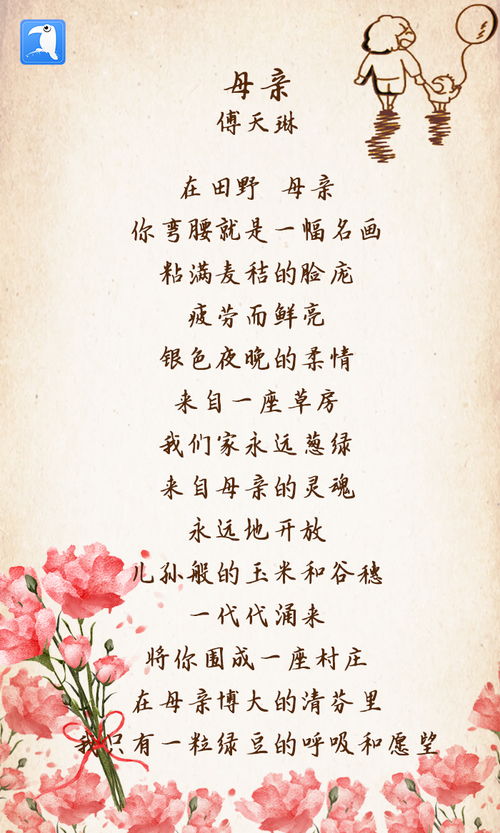 母亲
傅天琳
在田野 母亲
你弯腰就是一幅名画
粘满麦秸的脸庞
疲劳而鲜亮
银色夜晚的柔情
来自一座草房
我们家永远葱绿
来自母亲的灵魂
永远地开放
儿孙般的玉米和谷穗
一代代涌来
将你围成一座村庄
在母亲博大的清芬里
我只有一粒绿豆的呼吸和愿望